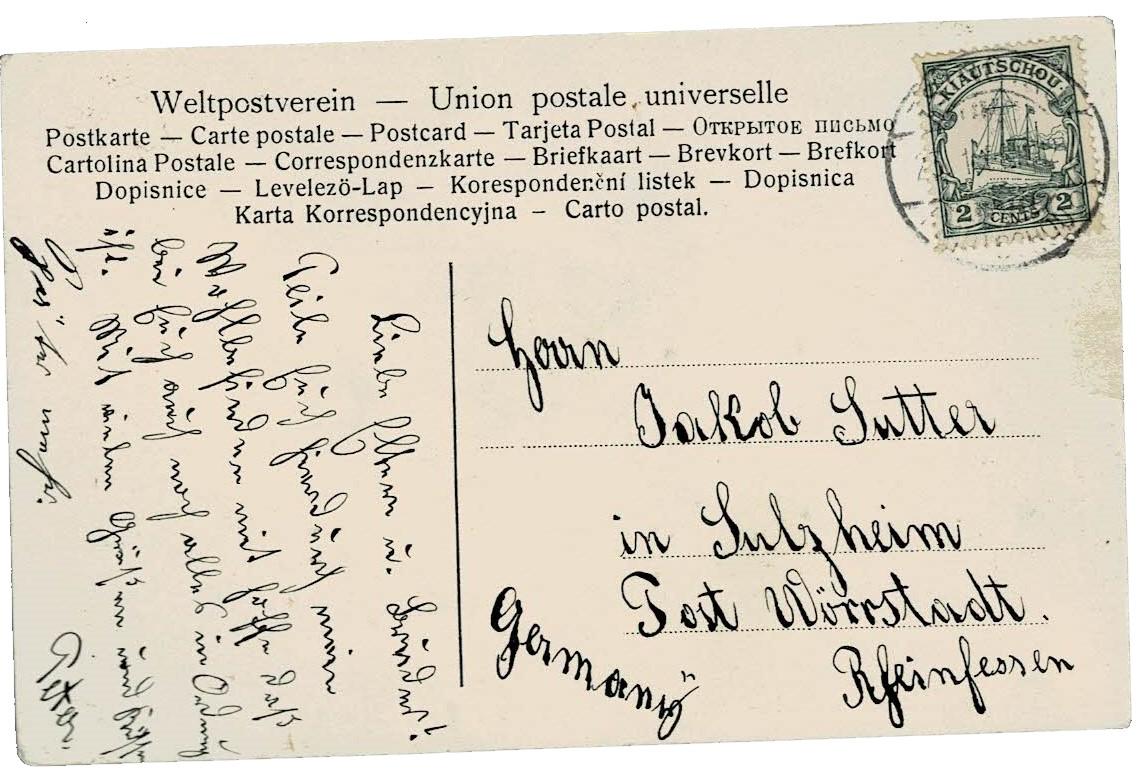 Weltpostverein — Union postale universelle
Postkarte — Carte postale — Postcard — Tarjeta Postal — Открытое письмо
Cartolina Postale — Correspondenzkarte — Briefkaart — Brevkort — Brefkort
Dopisnice — Levelezö-Lap — Korespondenční listek — Dopisnica
Karta Korrespondencyjna – Carto postal.
KIAUTSCHOU
2 CENTS 2
Liebe Eltern u. Brüder!
Teile Euch hierdurch mein
Wohlbefinden mit hoffe daß
bei Euch auch noch alles in Ordnung
ist. Mit vielen Grüßen und
Herrn
Jakob Sutter
in Sulzheim
Post Wörrstadt.
Rheinhessen
Germany